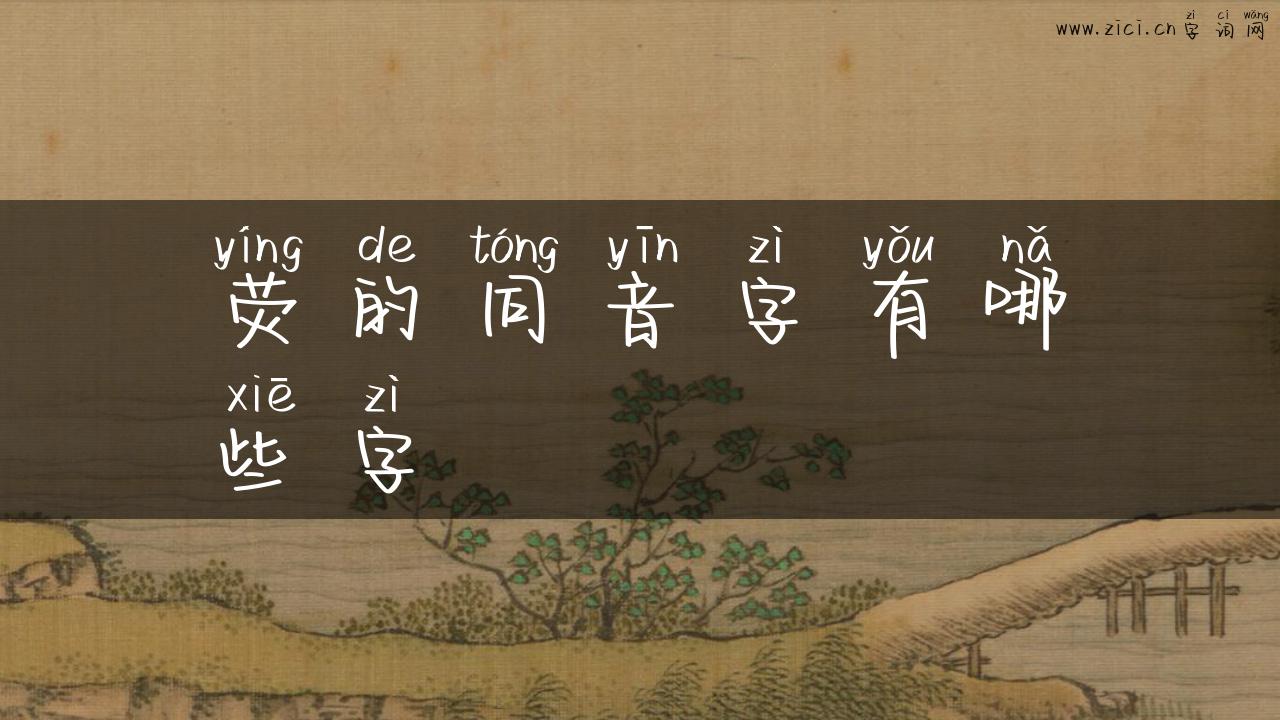 zì cí wǎng
www.zici.cn 字 词 网
yíng de tóng yīn zì yǒu nǎ
荧 的 同 音 字 有 哪
xiē zì
些 字